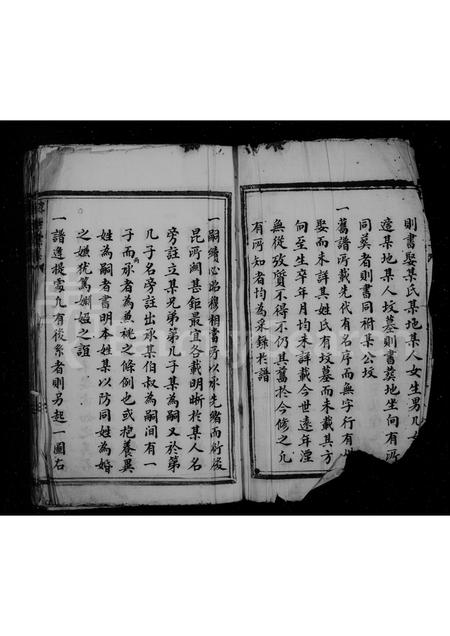 則書娶某氏某地某人女生男几女
遼某地某人坟墓則書葬地坐向有所
同葬者則書同祔某公坟
一舊譜所載先代有名序而無字行有
娶而未詳其姓氏有坟墓而未載其方
向至生卒年月均未詳載今世遠年湮
無從攷質不得不仍其舊於今修之凢
有所知者均為采錄於譜
一嗣續必昭穆相當所以承先緒而衍後
昆所關甚鉅最宜各載明晰於某人名
旁註立某兄弟第几子某為嗣又於第
几子名旁註出承某伯叔為嗣間有一
子而承者為兼祧之條例也或抱養異
姓為嗣者書明本姓某以防同姓為婚
之嫌犹篤婣婭之誼
一譜逢提處凢有後系者則另起一圖右